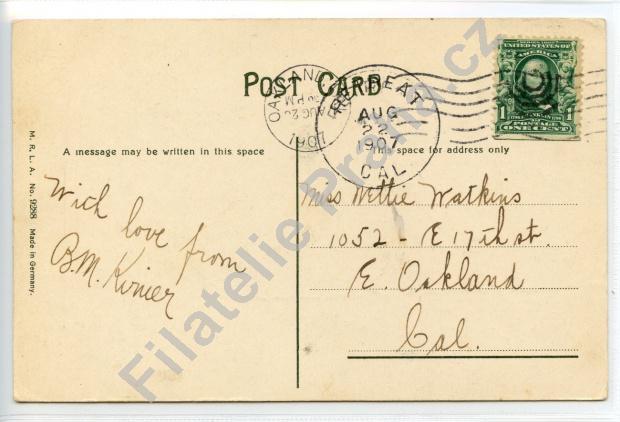 POST CARD
OAKLAND
AUG 2
1907
RETREAT
AUG
22
1907
CAL
UNITED STATES OF
AMERICA
1 POSTAGE 1
ONE CENT
A message may be written in this space
This space for address only
M. R. L. A. No. 9288 Made in Germany.
With love from
B.M. Kinier
Miss Nettie Watkins
1052 - E 17th st.
E. Oakland
Cal.
Filatelie Praha.cz